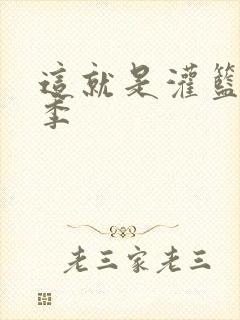 這就是灌籃
季
老三家老三